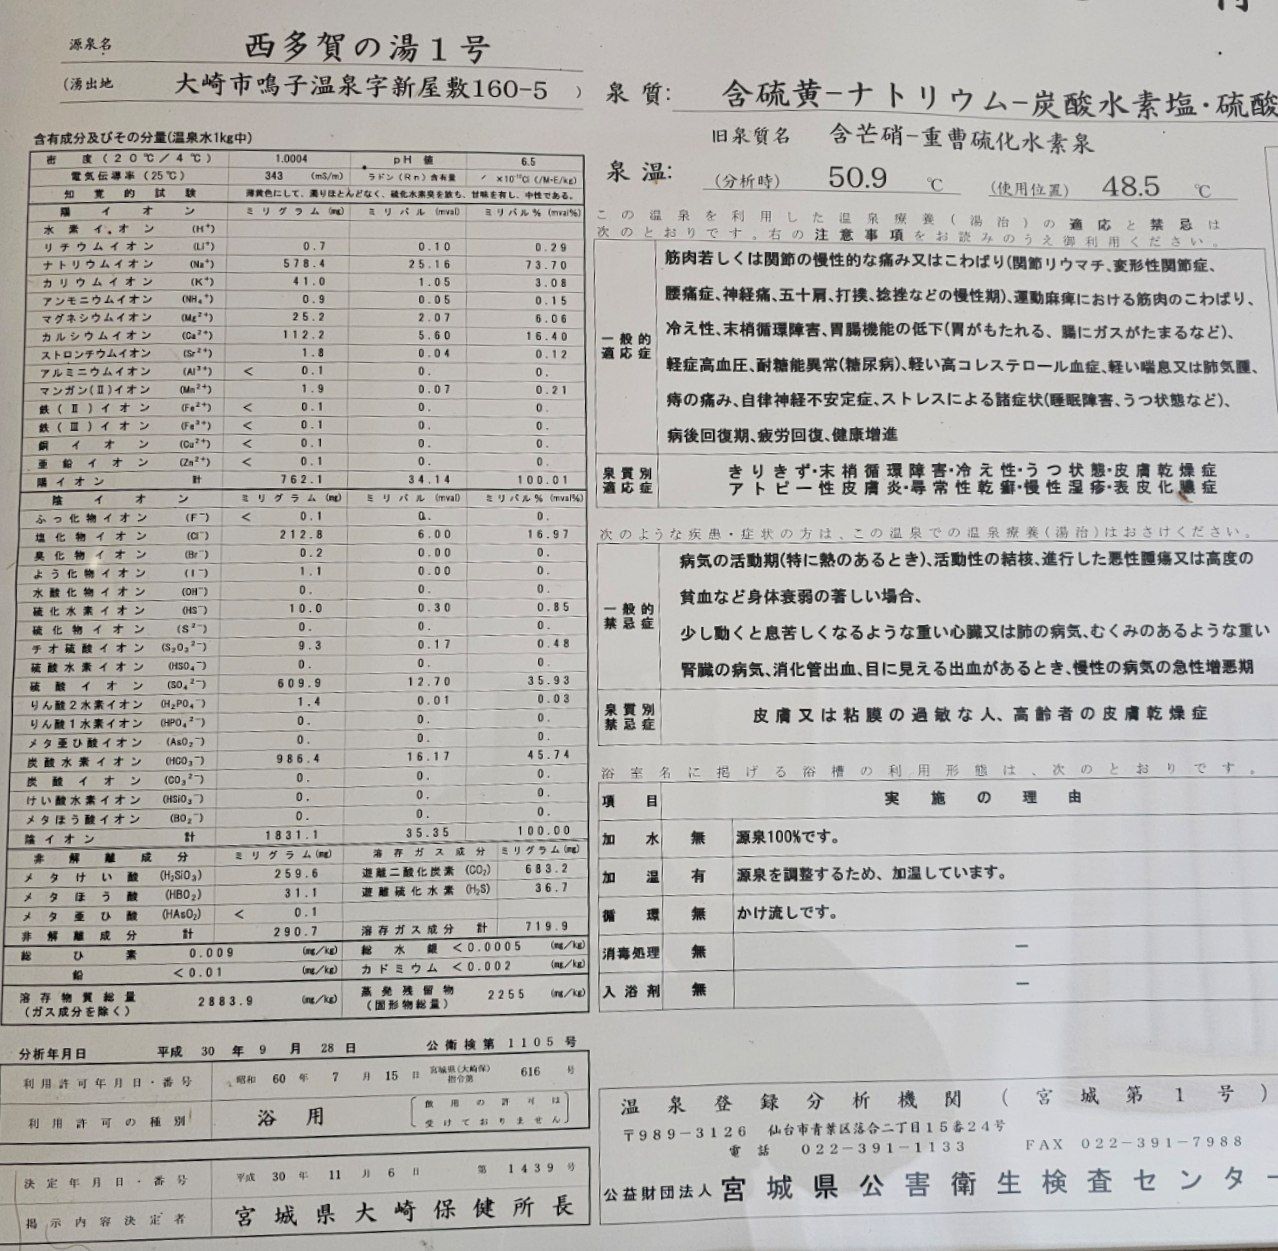 源泉名 西多賀の湯1号
(湧出地 大崎市鳴子温泉字新屋敷160-5 )
含有成分及びその分量(温泉水1kg中)
密 度(20℃/4℃) 1.0004 pH 値 6.5
電気伝導率(25℃) 343 (mS/m) ラドン(Rn)含有量 ×10⁻¹⁰Ci(/M-E/kg)
知覚的試験 薄黄色にして、濁りほとんどなく、硫化水素臭を放ち、甘味を有し、中性である。
陽イオン ミリグラム(mg) ミリバル(mval) ミリバル%(mval%)
水素イオン (H⁺)
リチウムイオン (Li⁺) 0.7 0.10 0.29
ナトリウムイオン (Na⁺) 578.4 25.16 73.70
カリウムイオン (K⁺) 41.0 1.05 3.08
アンモニウムイオン (NH₄⁺) 0.9 0.05 0.15
マグネシウムイオン (Mg²⁺) 25.2 2.07 6.06
カルシウムイオン (Ca²⁺) 112.2 5.60 16.40
ストロンチウムイオン (Sr²⁺) 1.8 0.04 0.12
アルミニウムイオン (Al³⁺) < 0.1 0. 0.
マンガン(Ⅱ)イオン (Mn²⁺) 1.9 0.07 0.21
鉄(Ⅱ)イオン (Fe²⁺) < 0.1 0. 0.
鉄(Ⅲ)イオン (Fe³⁺) < 0.1 0. 0.
銅イオン (Cu²⁺) < 0.1 0. 0.
亜鉛イオン (Zn²⁺) < 0.1 0. 0.
陽イオン 計 762.1 34.14 100.01
陰イオン ミリグラム(mg) ミリバル(mval) ミリバル%(mval%)
ふっ化物イオン (F⁻) < 0.1 0. 0.
塩化物イオン (Cl⁻) 212.8 6.00 16.97
臭化物イオン (Br⁻) 0.2 0.00 0.
よう化物イオン (I⁻) 1.1 0.00 0.
水酸化物イオン (OH⁻) 0. 0. 0.
硫化水素イオン (HS⁻) 10.0 0.30 0.85
硫化物イオン (S²⁻) 0. 0. 0.
チオ硫酸イオン (S₂O₃²⁻) 9.3 0.17 0.48
硫酸水素イオン (HSO₄⁻) 0. 0. 0.
硫酸イオン (SO₄²⁻) 609.9 12.70 35.93
りん酸2水素イオン (H₂PO₄⁻) 1.4 0.01 0.03
りん酸1水素イオン (HPO₄²⁻) 0. 0. 0.
メタ亜ひ酸イオン (AsO₂⁻) 0. 0. 0.
炭酸水素イオン (HCO₃⁻) 986.4 16.17 45.74
炭酸イオン (CO₃²⁻) 0. 0. 0.
けい酸水素イオン (HSiO₃⁻) 0. 0. 0.
メタほう酸イオン (BO₂⁻) 0. 0. 0.
陰イオン 計 1831.1 35.35 100.00
非解離成分 ミリグラム(mg) 溶存ガス成分 ミリグラム(mg)
メタけい酸 (H₂SiO₃) 259.6 遊離二酸化炭素 (CO₂) 683.2
メタほう酸 (HBO₂) 31.1 遊離硫化水素 (H₂S) 36.7
メタ亜ひ酸 (HAsO₂) < 0.1
非解離成分 計 290.7 溶存ガス成分 計 719.9
総ひ素 0.009 (mg/kg) 総水銀 <0.0005 (mg/kg)
鉛 <0.01 (mg/kg) カドミウム <0.002 (mg/kg)
溶存物質総量 2883.9 (mg/kg) 蒸発残留物 2255 (mg/kg)
(ガス成分を除く) (固形物総量)
分析年月日 平成 30 年 9 月 28 日 公衛検第 1105 号
利用許可年月日・番号 昭和 60 年 7 月 15 日 宮城県(大崎保)指令第 616 号
利用許可の種別 浴用 [飲用の許可は受けておりません]
決定年月日・番号 平成 30 年 11 月 6 日 第 1439 号
掲示内容決定者 宮城県大崎保健所長
泉質: 含硫黄-ナトリウム-炭酸水素塩・硫酸
旧泉質名 含芒硝-重曹硫化水素泉
泉温: (分析時) 50.9 ℃ (使用位置) 48.5 ℃
この温泉を利用した温泉療養(湯治)の適応と禁忌は
次のとおりです。右の注意事項をお読みのうえ御利用ください。
一般的適応症
筋肉若しくは関節の慢性的な痛み又はこわばり(関節リウマチ、変形性関節症、
腰痛症、神経痛、五十肩、打撲、捻挫などの慢性期)、運動麻痺における筋肉のこわばり、
冷え性、末梢循環障害、胃腸機能の低下(胃がもたれる、腸にガスがたまるなど)、
軽症高血圧、耐糖能異常(糖尿病)、軽い高コレステロール血症、軽い喘息又は肺気腫、
痔の痛み、自律神経不安定症、ストレスによる諸症状(睡眠障害、うつ状態など)、
病後回復期、疲労回復、健康増進
泉質別適応症
きりきず・末梢循環障害・冷え性・うつ状態・皮膚乾燥症
アトピー性皮膚炎・尋常性乾癬・慢性湿疹・表皮化膿症
次のような疾患・症状の方は、この温泉での温泉療養(湯治)はおさけください。
一般的禁忌症
病気の活動期(特に熱のあるとき)、活動性の結核、進行した悪性腫瘍又は高度の
貧血など身体衰弱の著しい場合、
少し動くと息苦しくなるような重い心臓又は肺の病気、むくみのあるような重い
腎臓の病気、消化管出血、目に見える出血があるとき、慢性の病気の急性増悪期
泉質別禁忌症
皮膚又は粘膜の過敏な人、高齢者の皮膚乾燥症
浴室名に掲げる浴槽の利用形態は、次のとおりです。
項目 実施の理由
加水 無 源泉100%です。
加温 有 源泉を調整するため、加温しています。
循環 無 かけ流しです。
消毒処理 無 ー
入浴剤 無 ー
温泉登録分析機関(宮城第1号)
〒989-3126 仙台市青葉区落合二丁目15番24号
電話 022-391-1133 FAX 022-391-7988
公益財団法人 宮城県公害衛生検査センター